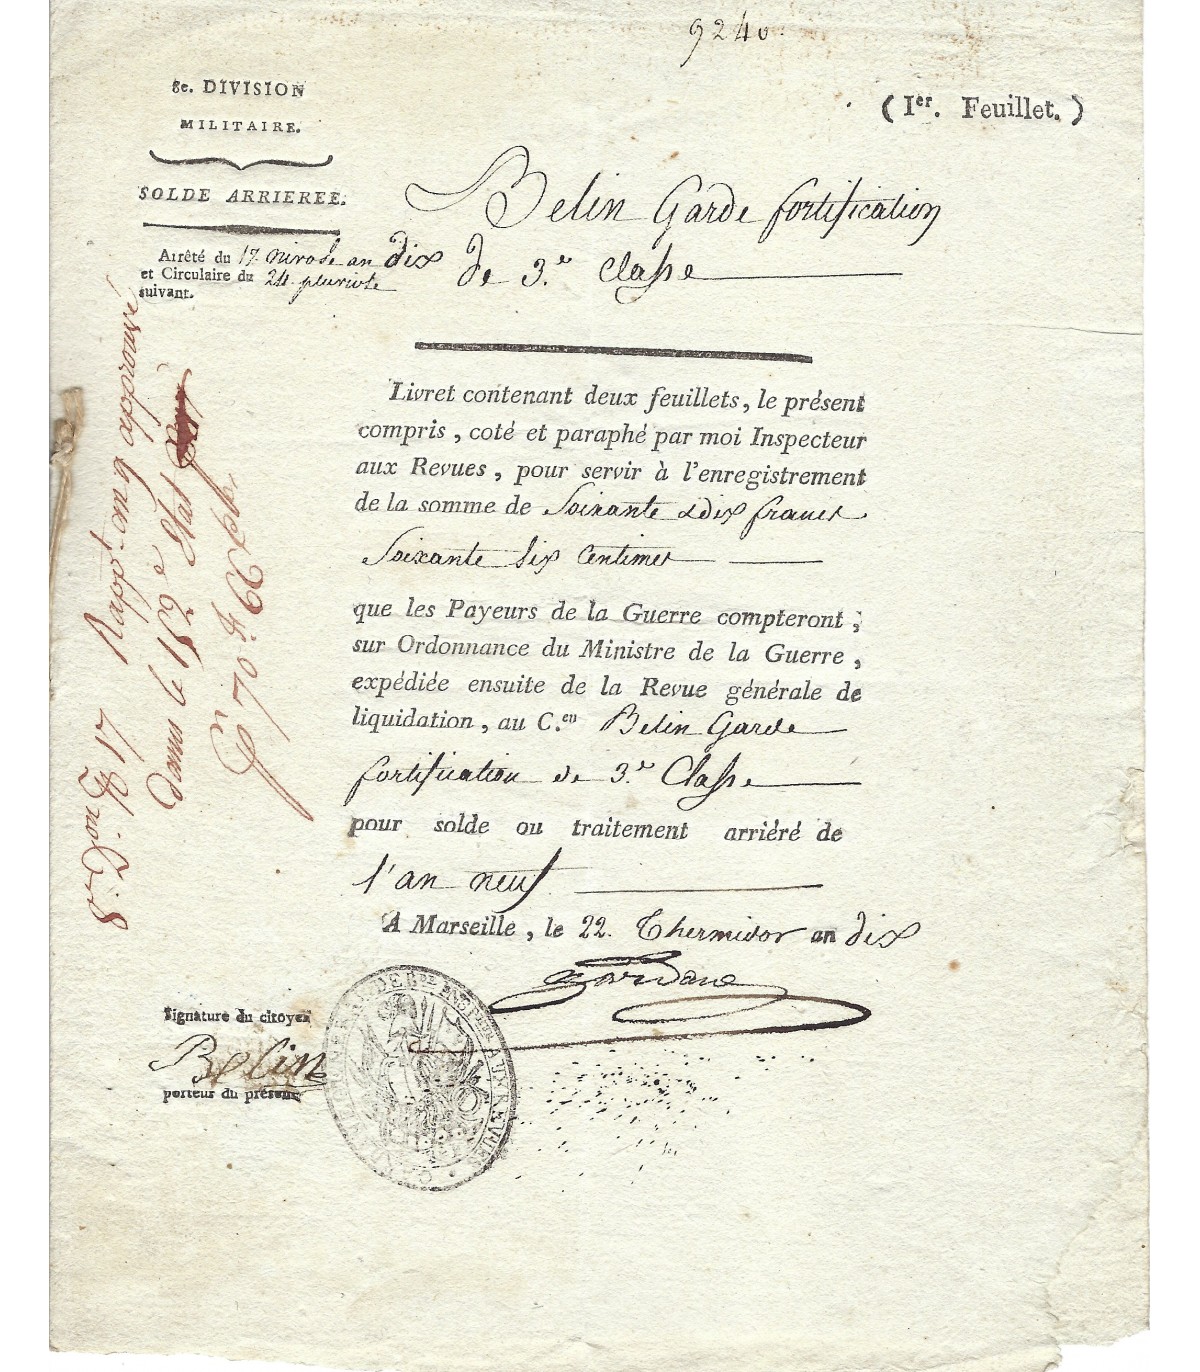 9240
8e. DIVISION
MILITAIRE.
(Ier. Feuillet.)
SOLDE ARRIEREE.
Belin Garde fortification
de 3.e Classe
Arrêté du 17 nivose an dix
et Circulaire du 24 pluviose
suivant.
Livret contenant deux feuillets, le présent
compris, coté et paraphé par moi Inspecteur
aux Revues, pour servir à l'enregistrement
de la somme de Soixante & dix francs
Soixante Six Centimes
que les Payeurs de la Guerre compteront,
sur Ordonnance du Ministre de la Guerre,
expédiée ensuite de la Revue générale de
liquidation, au C.en Belin Garde
fortification de 3.e Classe
pour solde ou traitement arriéré de
l'an neuf
A Marseille, le 22. Thermidor an dix
Signature du citoyen
Belin
porteur du présent
8e Don D. No 17 Rapp.t omg approuvé
dans le 152e Etat
70 f 66
AUX REVUES